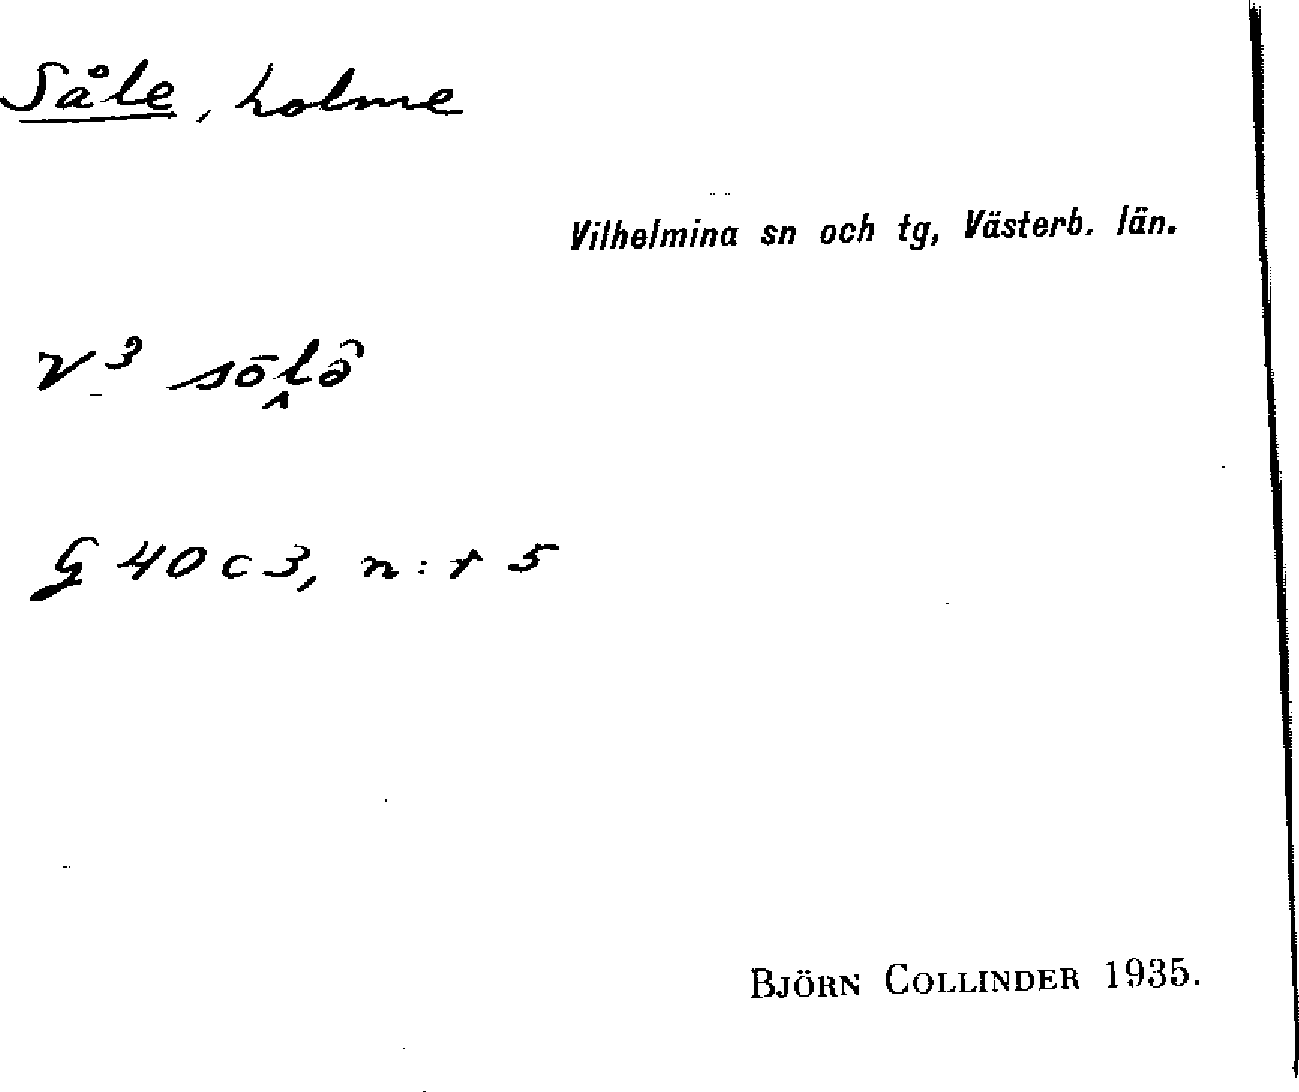 Såle, holme
Vilhelmina sn och tg, Västerb. län.
V³ sōḽə̂
G 40 c 3, n:r 5
BJÖRN COLLINDER 1935.